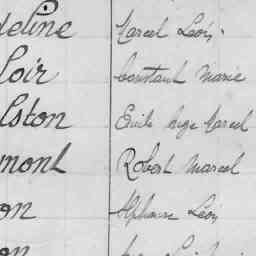 deline Marcel Léon
loir Constant Marie
lston Emile Marcel
mont Robert Marcel
on Alphonse Léon
on